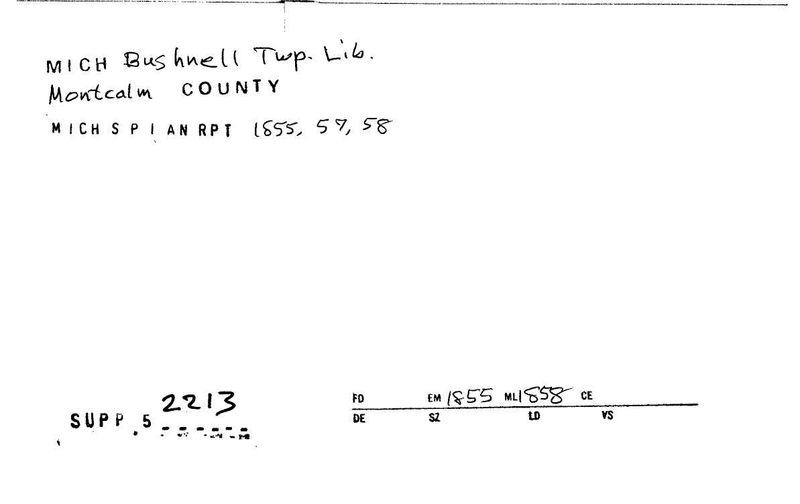 MICH Bushnell Twp. Lib.
Montcalm COUNTY
MICH S P I AN RPT 1855, 57, 58
2213
SUPP. 5
FD EM 1855 ML 1858 CE
DE SZ LD VS